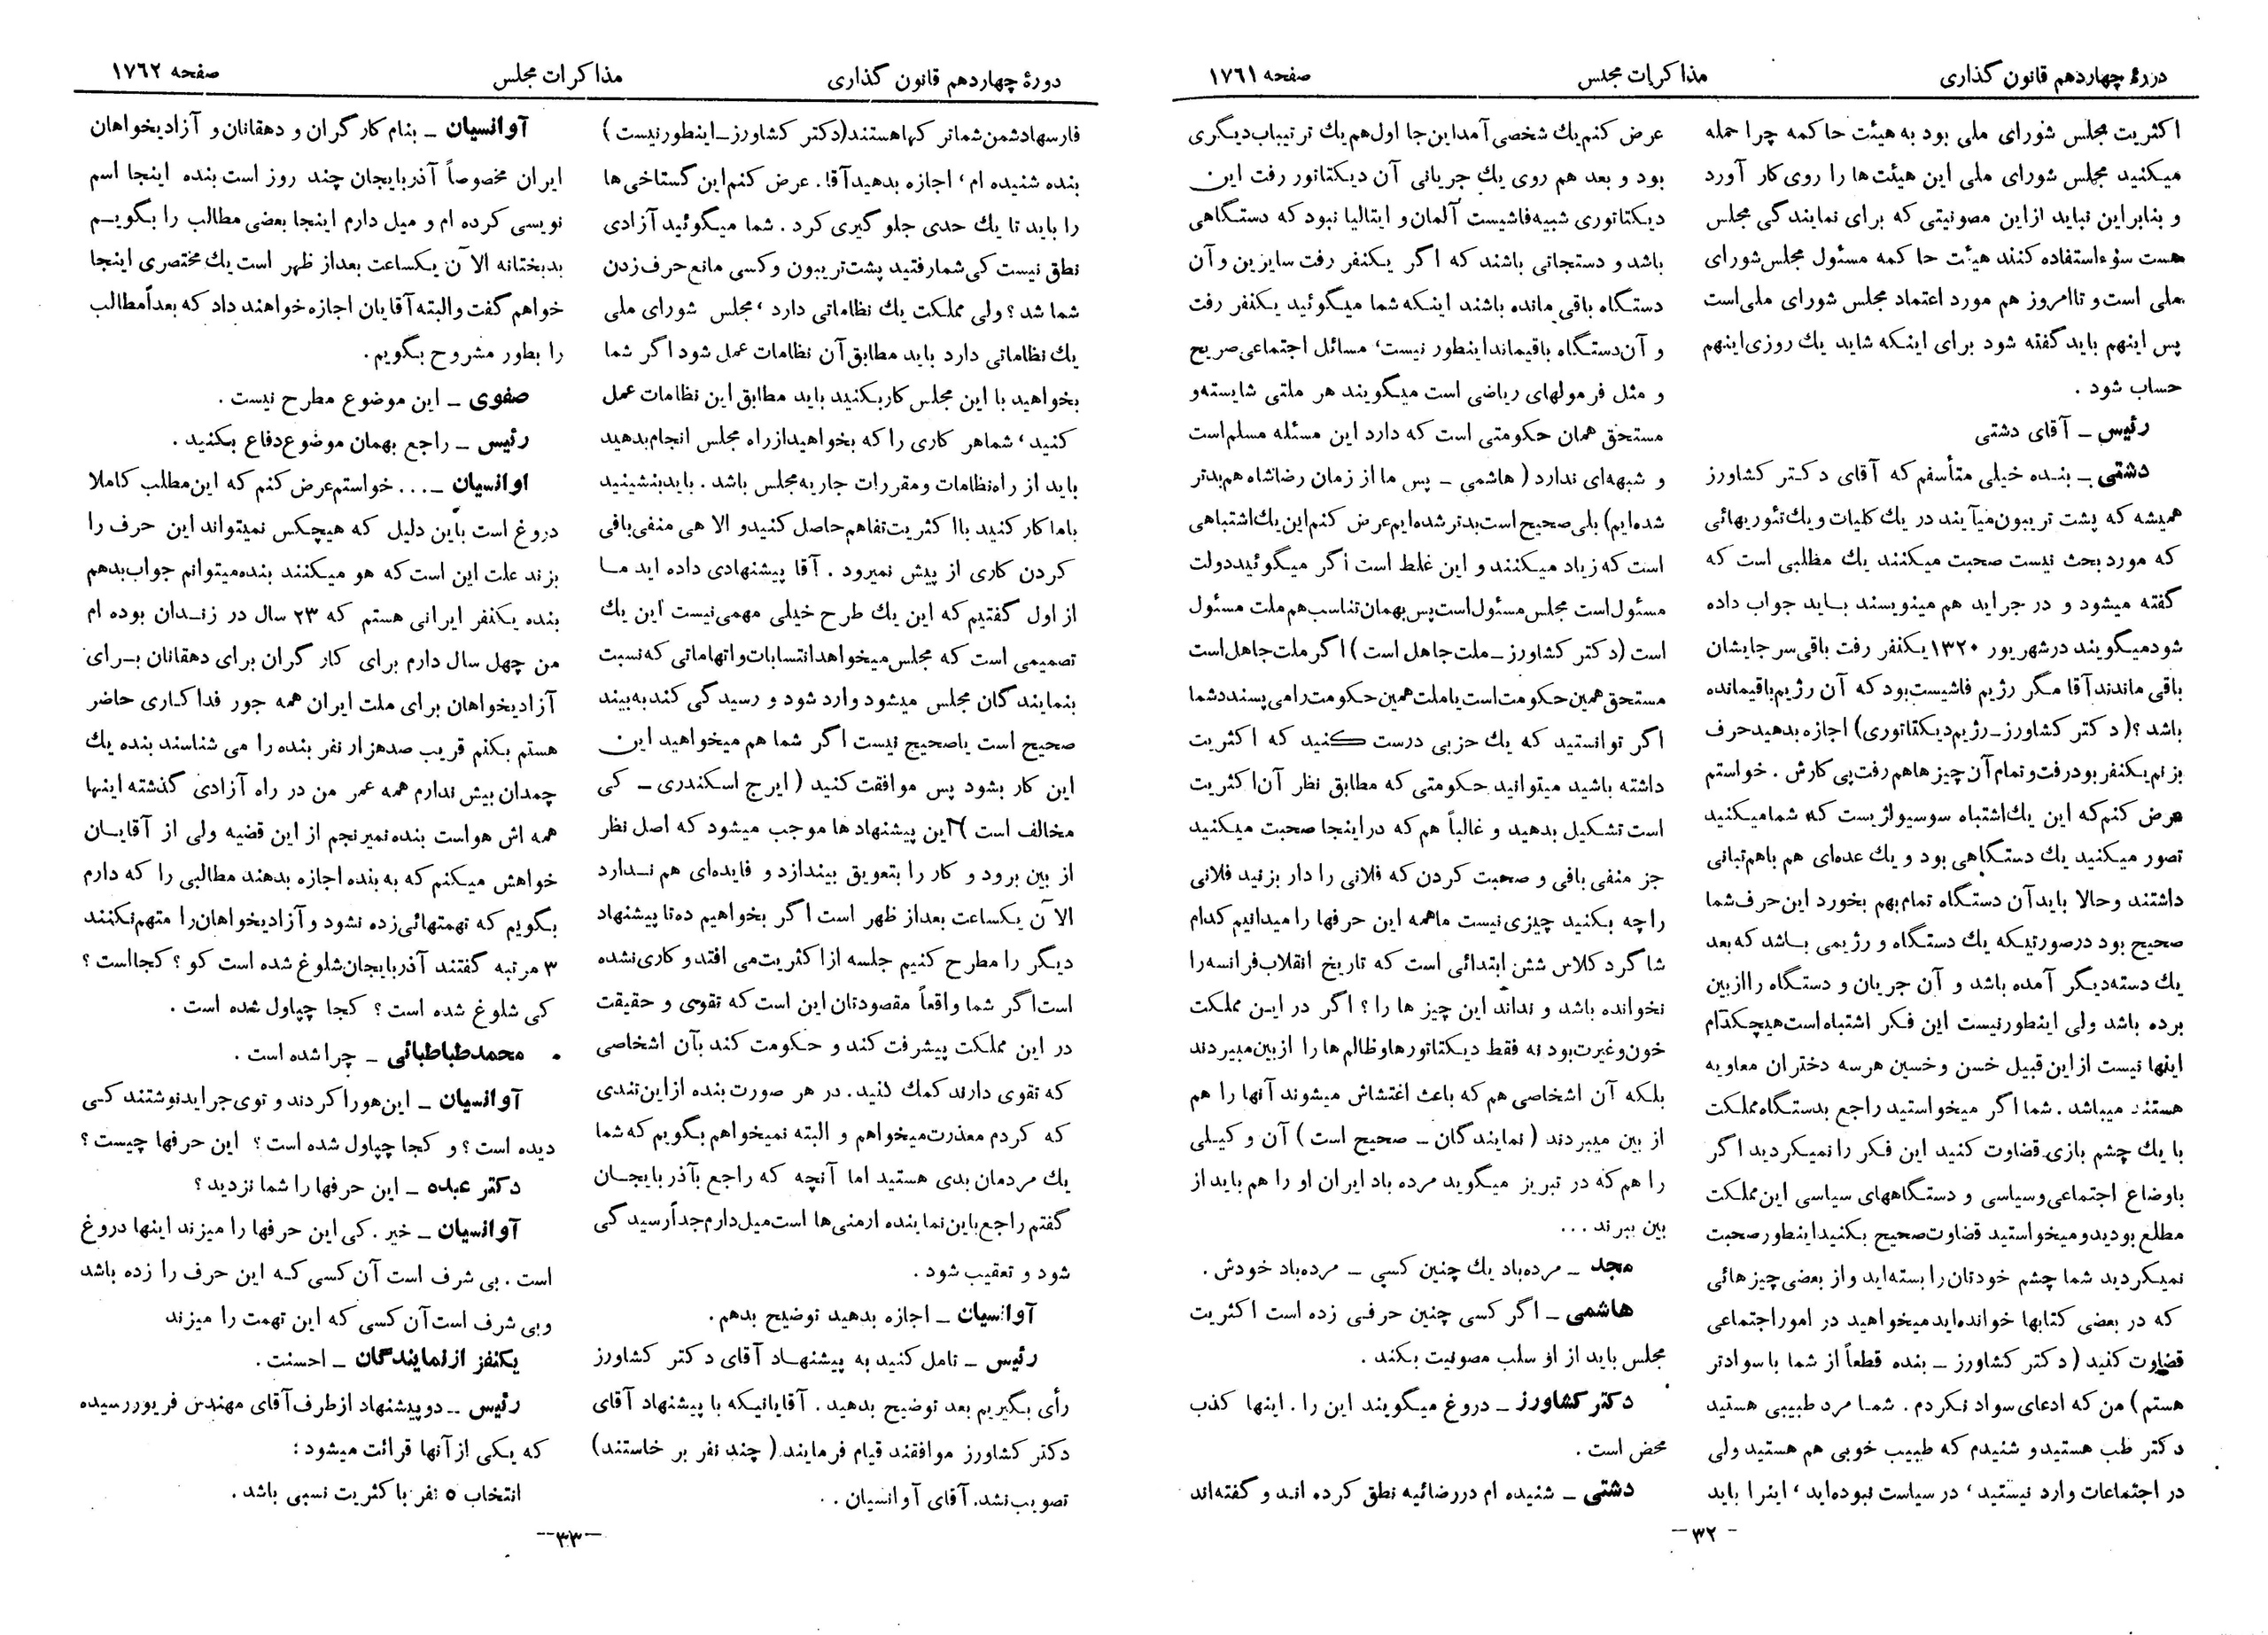 دورهٔ چهاردهم قانون گذاری
مذاکرات مجلس
صفحه ۱۷٦۱
اکثریت مجلس شورای ملی بود به هیئت حاکمه چرا حمله
میکنید مجلس شورای ملی این هیئت‌ها را روی‌کار آورد
و بنابراین نباید ازاین مصونیتی که برای نمایندگی مجلس
هست سؤءاستفاده کنند هیأت حاکمه مسئول مجلس‌شورای
ملی است و تاامروز هم مورد اعتماد مجلس شورای ملی‌است
پس اینهم باید گفته شود برای اینکه شاید یك روزی‌اینهم
حساب شود .
رئیس ــ آقای دشتی
دشتی ــ بنده خیلی متأسفم که آقای دکتر کشاورز
همیشه که پشت تریبون میآیند در یك کلیات ویك تئوریهائی
که مورد بحث نیست صحبت میکنند یك مطلبی است که
گفته میشود و در جراید هم مینویسند باید جواب داده
شود میگویند در شهریور ۱۳۲۰ یکنفر رفت باقی سرجایشان
باقی ماندند آقا مگر رژیم فاشیست‌بود که آن رژیم باقیمانده
باشد ؟ ( دکتر کشاورز ــ رژیم دیکتاتوری) اجازه بدهید حرف
بزنم یکنفر بود رفت و تمام آن چیزها هم رفت پی کارش . خواستم
عرض کنم که این یك اشتباه سوسیولژیست که شما میکنید
تصور میکنید یك دستگاهی بود و یك عده‌ای هم باهم تبانی
داشتند و حالا باید آن دستگاه تمام بهم بخورد این حرف شما
صحیح بود درصورتیکه یك دستگاه و رژیمی باشد که بعد
یك دسته دیگر آمده باشد و آن جریان و دستگاه را ازبین
برده باشد ولی اینطور نیست این فکر اشتباه است هیچکدام
اینها نیست از این قبیل خسن و خسین هرسه دختران معاویه
هستند میباشد . شما اگر میخواستید راجع بدستگاه مملکت
با یك چشم بازی قضاوت کنید این فکر را نمیکردید اگر
باوضاع اجتماعی و سیاسی و دستگاههای سیاسی این مملکت
مطلع بودید و میخواستید قضاوت صحیح بکنید اینطور صحبت
نمیکردید شما چشم خودتان را بسته‌اید و از بعضی چیزهائی
که در بعضی کتابها خوانده‌اید میخواهید در امور اجتماعی
قضاوت کنید ( دکتر کشاورز ــ بنده قطعاً از شما باسوادتر
هستم ) من که ادعای سواد نکردم . شما مرد طبیبی هستید
دکتر طب هستید و شنیدم که طبیب خوبی هم هستید ولی
در اجتماعات وارد نیستید ، در سیاست نبوده‌اید ، اینرا باید
عرض کنم یك شخصی آمد این جا اول هم یك ترتیباب دیگری
بود و بعد هم روی یك جریانی آن دیکتاتور رفت این
دیکتاتوری شبیه فاشیست آلمان و ایتالیا نبود که دستگاهی
باشد و دستجاتی باشند که اگر یکنفر رفت سایرین و آن
دستگاه باقی مانده باشند اینکه شما میگوئید یکنفر رفت
و آن دستگاه باقیماند اینطور نیست ، مسائل اجتماعی صریح
و مثل فرمولهای ریاضی است میگویند هر ملتی شایسته و
مستحق همان حکومتی است که دارد این مسئله مسلم است
و شبهه‌ای ندارد ( هاشمی ــ پس ما از زمان رضاشاه هم بدتر
شده‌ایم) بلی صحیح است بدتر شده‌ایم عرض کنم این یك اشتباهی
است که زیاد میکنند و این غلط است اگر میگوئید دولت
مسئول است مجلس مسئول است پس بهمان تناسب هم ملت مسئول
است ( دکتر کشاورز ــ ملت جاهل است ) اگر ملت جاهل است
مستحق همین حکومت است یا ملت همین حکومت را می پسندد شما
اگر توانستید که یك حزبی درست کنید که اکثریت
داشته باشید میتوانید حکومتی که مطابق نظر آن اکثریت
است تشکیل بدهید و غالباً هم که در اینجا صحبت میکنید
جز منفی بافی و صحبت کردن که فلانی را دار بزنید فلانی
راچه بکنید چیزی نیست ما همه این حرفها را میدانیم کدام
شاگرد کلاس شش ابتدائی است که تاریخ انقلاب فرانسه را
نخوانده باشد و نداند این چیز ها را ؟ اگر در این مملکت
خون و غیرت بود نه فقط دیکتاتورها و ظالم ها را ازبین میبردند
بلکه آن اشخاصی هم که باعث اغتشاش میشوند آنها را هم
از بین میبردند ( نمایندگان ــ صحیح است ) آن وکیلی
را هم که در تبریز میگوید مرده باد ایران او را هم باید از
بین ببرند ...
مجد ــ مرده‌باد یك چنین کسی ــ مرده‌باد خودش .
هاشمی ــ اگر کسی چنین حرفی زده است اکثریت
مجلس باید از او سلب مصونیت بکند .
دکتر کشاورز ــ دروغ میگویند این را . اینها کذب
محض است .
دشتی ــ شنیده ام در رضائیه نطق کرده اند و گفته‌اند
ــ ۳۲ ــ
دورهٔ چهاردهم قانون گذاری
مذاکرات مجلس
صفحه ۱۷٦۲
فارسها دشمن شما ترکها هستند (دکتر کشاورز ــ اینطور نیست )
بنده شنیده ام ، اجازه بدهید آقا . عرض کنم این گستاخی ها
را باید تا یك حدی جلوگیری کرد . شما میگوئید آزادی
نطق نیست کی شما رفتید پشت تریبون و کسی مانع حرف زدن
شما شد ؟ ولی مملکت یك نظاماتی دارد ، مجلس شورای ملی
یك نظاماتی دارد باید مطابق آن نظامات عمل شود اگر شما
بخواهید با این مجلس کار بکنید باید مطابق این نظامات عمل
کنید ، شما هر کاری را که بخواهید از راه مجلس انجام بدهید
باید از راه نظامات و مقررات جاریه مجلس باشد . باید بنشینید
باما کار کنید با اکثریت تفاهم حاصل کنید و الا هی منفی بافی
کردن کاری از پیش نمیرود . آقا پیشنهادی داده اید ما
از اول گفتیم که این یك طرح خیلی مهمی نیست این یك
تصمیمی است که مجلس میخواهد انتسابات و اتهاماتی که نسبت
بنمایندگان مجلس میشود وارد شود و رسیدگی کند به بیند
صحیح است یا صحیح نیست اگر شما هم میخواهید این
این کار بشود پس موافقت کنید ( ایرج اسکندری ــ کی
مخالف است ) این پیشنهاد ها موجب میشود که اصل نظر
از بین برود و کار را بتعویق بیندازد و فایده‌ای هم ندارد
الآن یکساعت بعد از ظهر است اگر بخواهیم ده تا پیشنهاد
دیگر را مطرح کنیم جلسه از اکثریت می افتد و کاری نشده
است اگر شما واقعاً مقصودتان این است که تقوی و حقیقت
در این مملکت پیشرفت کند و حکومت کند بآن اشخاصی
که تقوی دارند کمك کنید . در هر صورت بنده از این تندی
که کردم معذرت میخواهم و البته نمیخواهم بگویم که شما
یك مردمان بدی هستید اما آنچه که راجع بآذربایجان
گفتم راجع باین نماینده ارمنی ها است میل دارم جداً رسیدگی
شود و تعقیب شود .
آوانسیان ــ اجازه بدهید توضیح بدهم .
رئیس ــ تامل کنید به پیشنهاد آقای دکتر کشاورز
رأی بگیریم بعد توضیح بدهید . آقایانیکه با پیشنهاد آقای
دکتر کشاورز موافقند قیام فرمایند ( چند نفر بر خاستند )
تصویب نشد . آقای آوانسیان . .
آوانسیان ــ بنام کارگران و دهقانان و آزادیخواهان
ایران مخصوصاً آذربایجان چند روز است بنده اینجا اسم
نویسی کرده ام و میل دارم اینجا بعضی مطالب را بگویم
بدبختانه الآن یکساعت بعد از ظهر است یك مختصری اینجا
خواهم گفت و البته آقایان اجازه خواهند داد که بعداً مطالب
را بطور مشروح بگویم .
صفوی ــ این موضوع مطرح نیست .
رئیس ــ راجع بهمان موضوع دفاع بکنید .
اوانسیان ــ ... خواستم عرض کنم که این مطلب کاملا
دروغ است باین دلیل که هیچکس نمیتواند این حرف را
بزند علت این است که هو میکنند بنده میتوانم جواب بدهم
بنده یکنفر ایرانی هستم که ۲۳ سال در زندان بوده ام
من چهل سال دارم برای کارگران برای دهقانان برای
آزادیخواهان برای ملت ایران همه جور فداکاری حاضر
هستم بکنم قریب صدهزار نفر بنده را می شناسند بنده یك
چمدان بیش ندارم همه عمر من در راه آزادی گذشته اینها
همه اش هواست بنده نمیرنجم از این قضیه ولی از آقایان
خواهش میکنم که به بنده اجازه بدهند مطالبی را که دارم
بگویم که تهمتهائی زده نشود و آزادیخواهان را متهم نکنند
۳ مرتبه گفتند آذربایجان شلوغ شده است کو ؟ کجااست ؟
کی شلوغ شده است ؟ کجا چپاول شده است .
محمد طباطبائی ــ چرا شده است .
آوانسیان ــ این هو را کردند و توی جراید نوشتند کی
دیده است ؟ و کجا چپاول شده است ؟ این حرفها چیست ؟
دکتر عبده ــ این حرفها را شما نزدید ؟
آوانسیان ــ خیر . کی این حرفها را میزند اینها دروغ
است . بی شرف است آن کسی که این حرف را زده باشد
وبی شرف است آن کسی که این تهمت را میزند
یکنفر از نمایندگان ــ احسنت .
رئیس ــ دو پیشنهاد از طرف آقای مهندس فریور رسیده
که یکی از آنها قرائت میشود :
انتخاب ٥ نفر با کثریت نسبی باشد .
ــ ۳۳ ــ